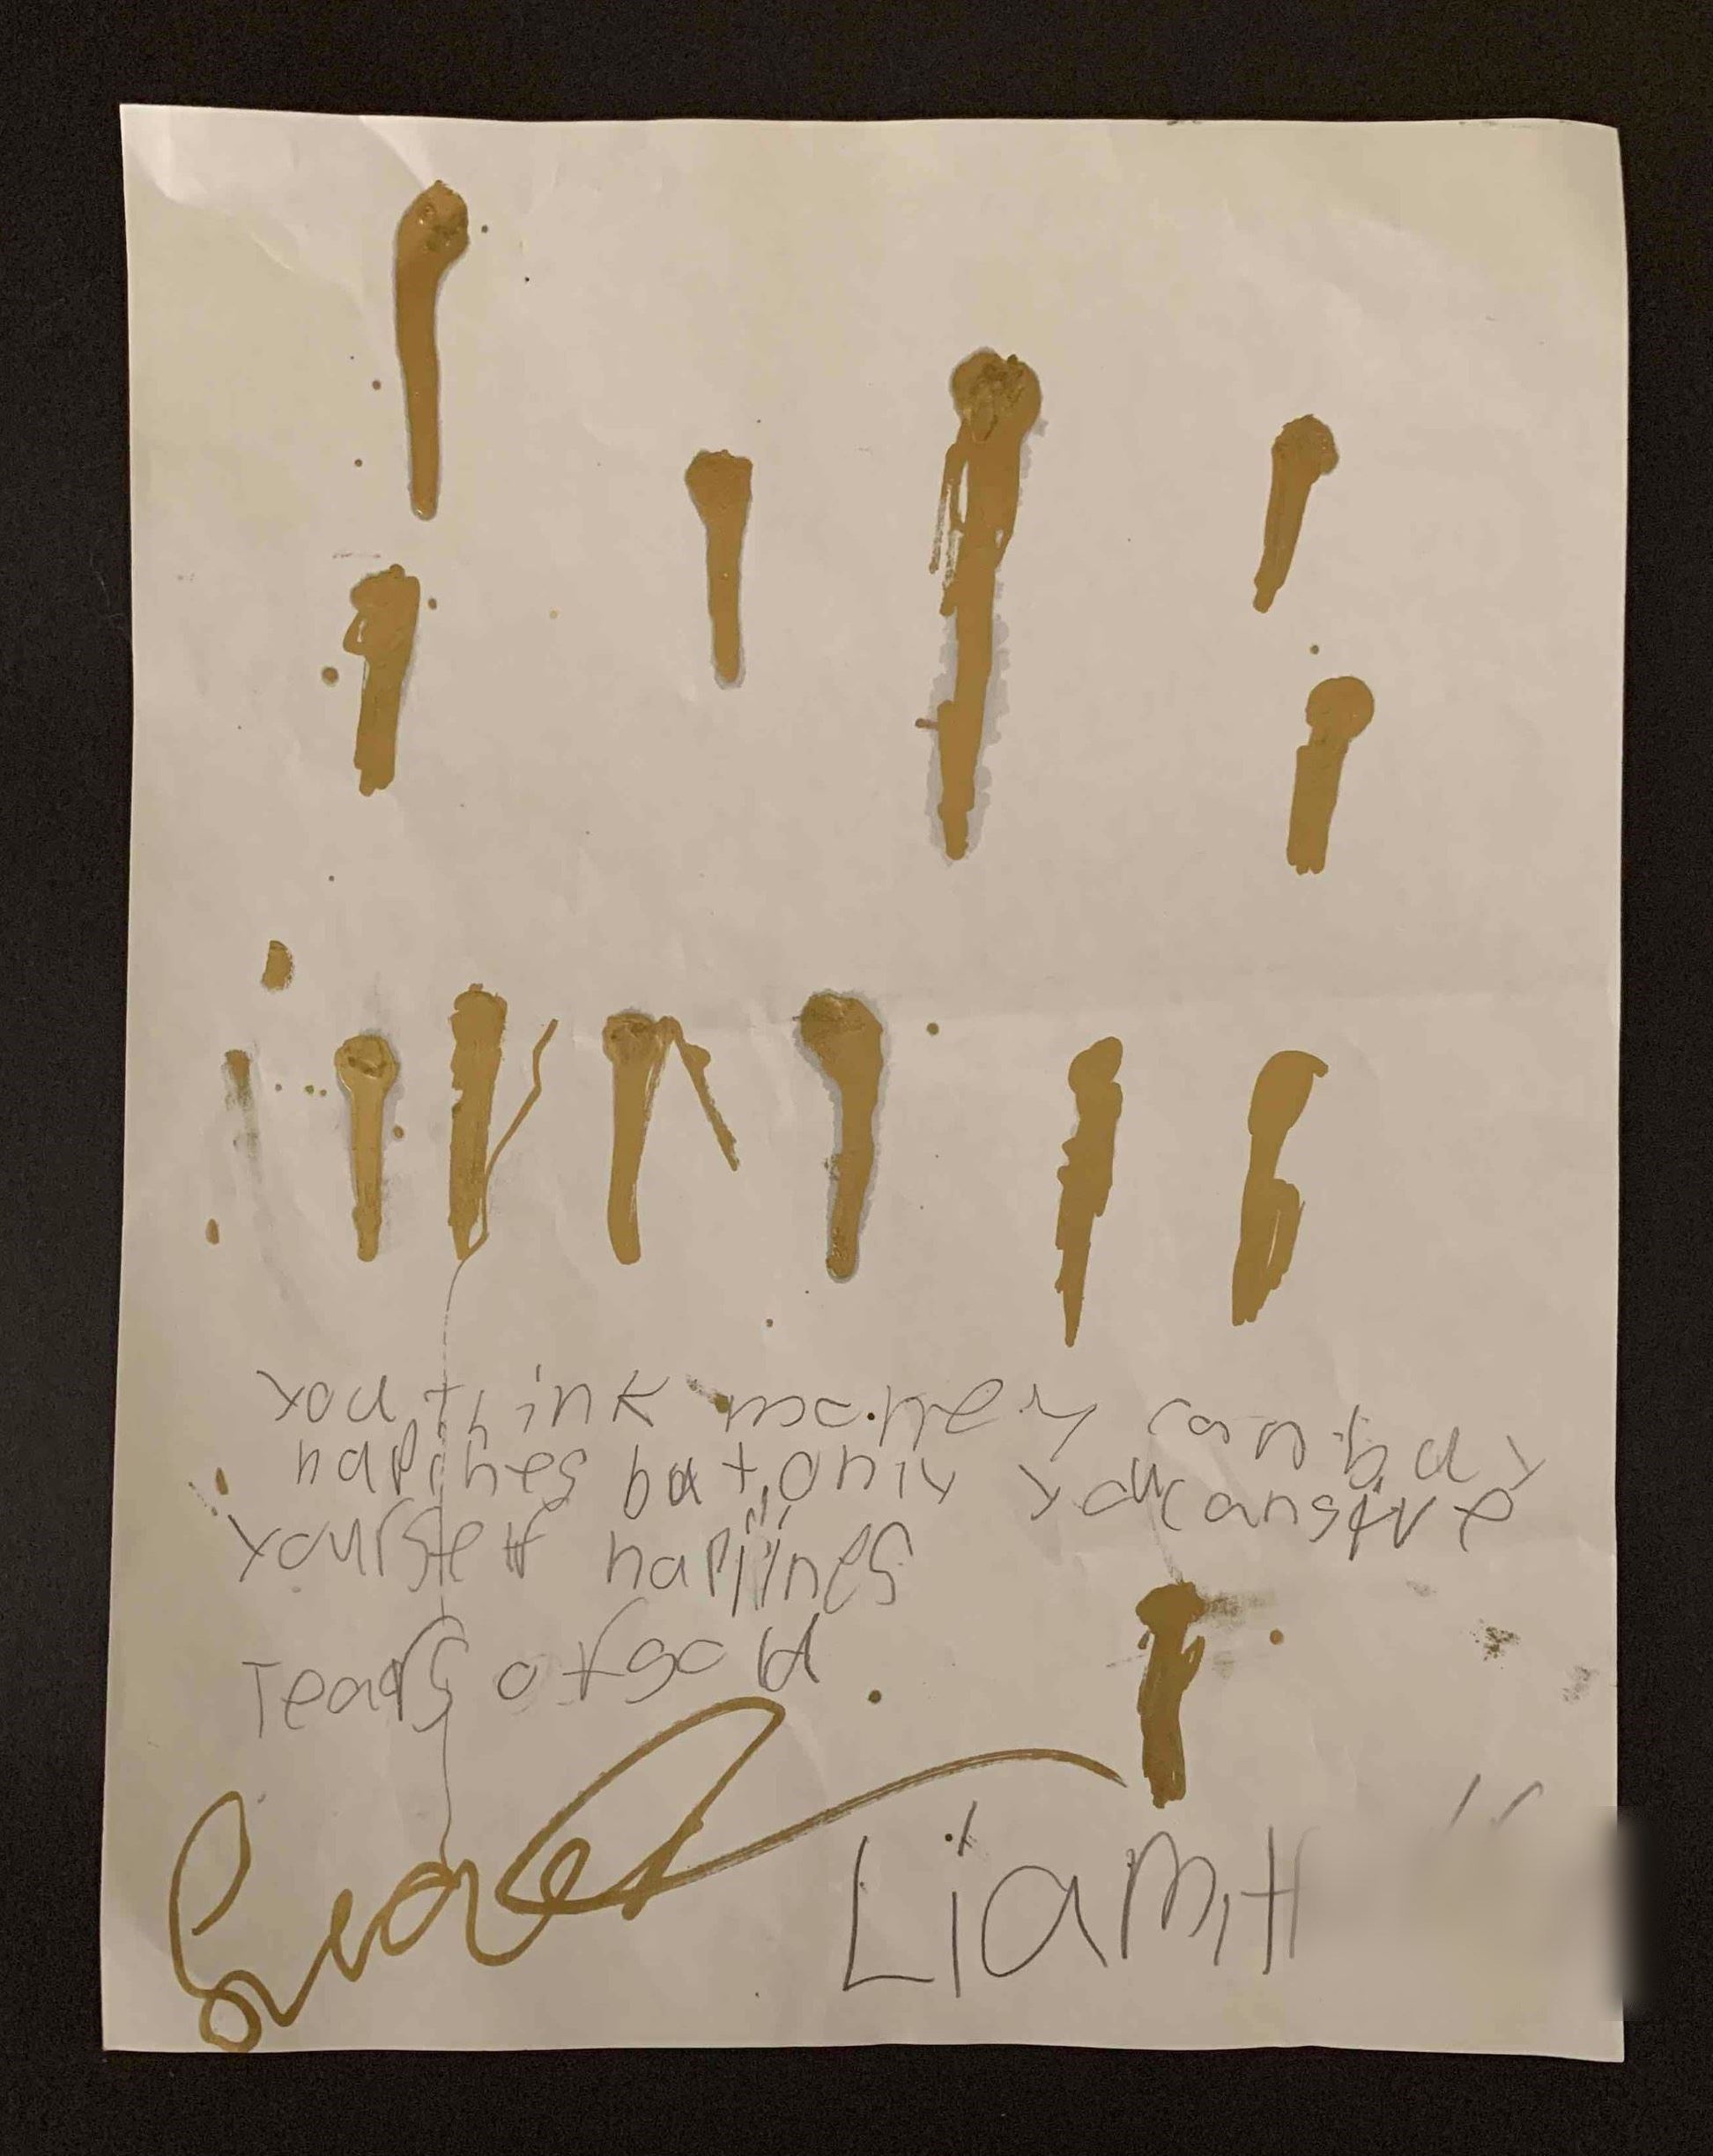 you think money can buy
happines but only you can give
yourself happiines
Tears of gold
Liam H